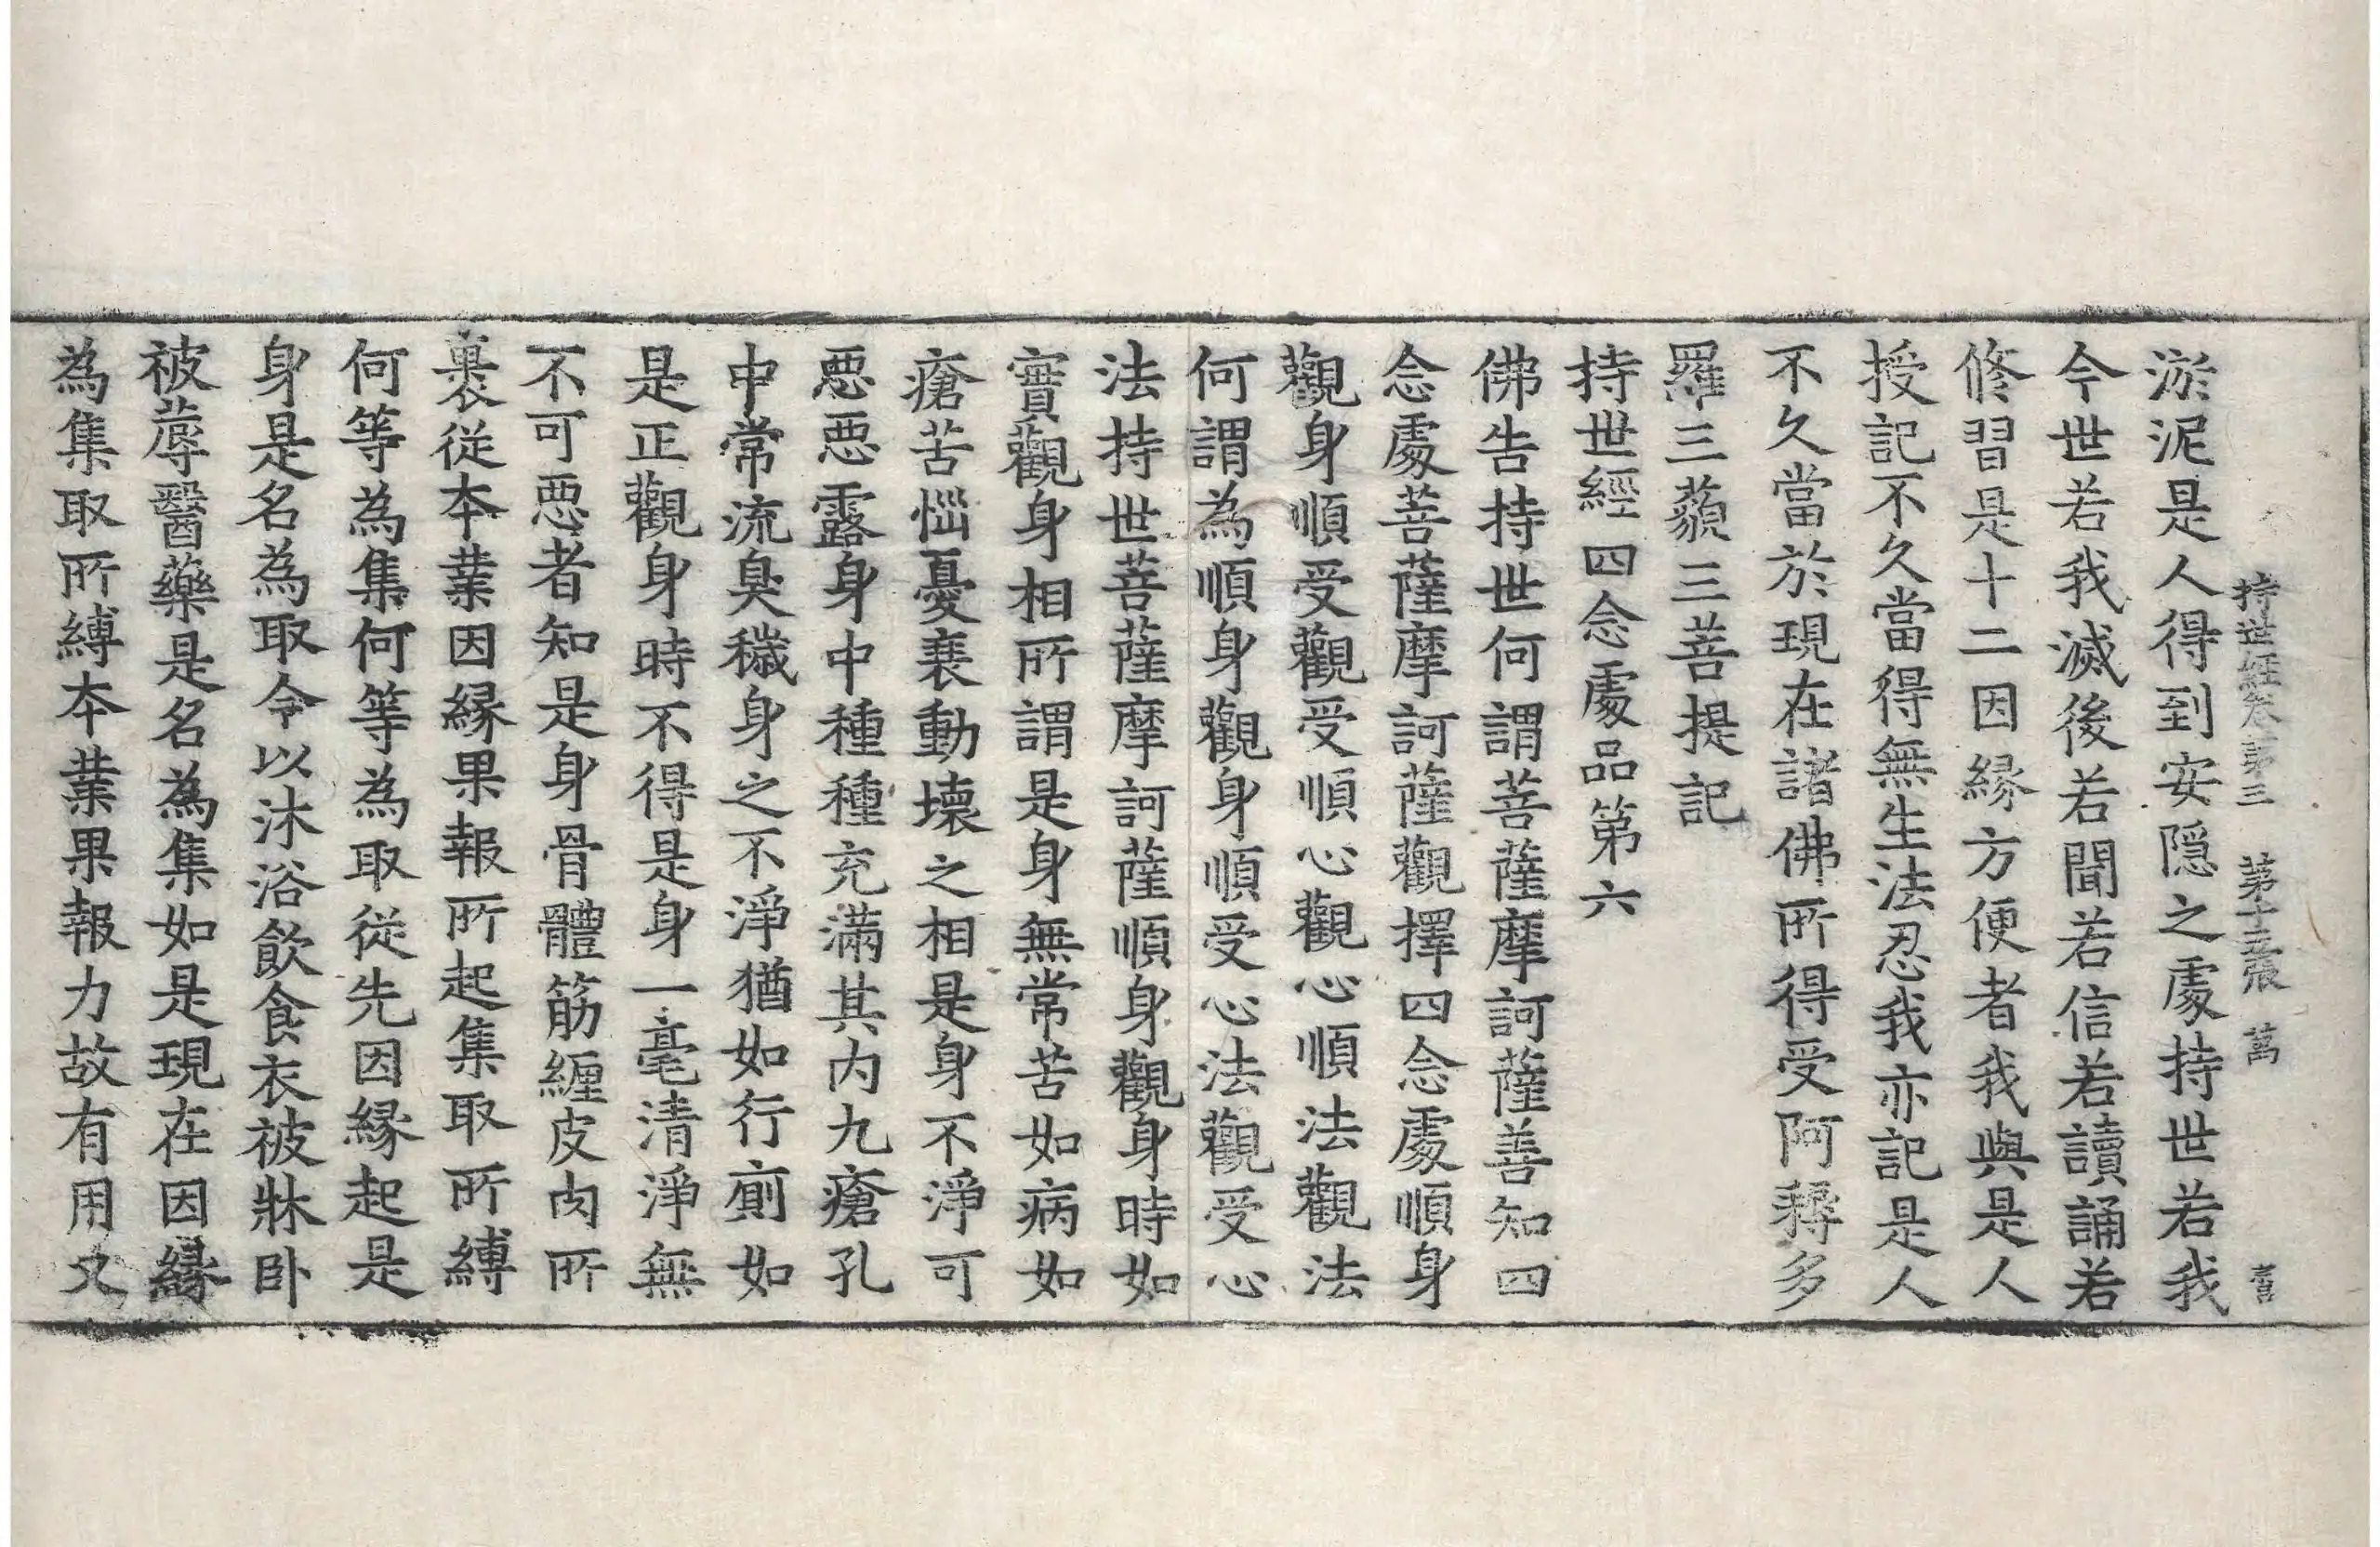 持世経卷第三 第十五張 萬
淤泥是人得到安隱之處持世若我
今世若我滅後若聞若信若讀誦若
修習是十二因緣方便者我與是人
授記不久當得無生法忍我亦記是人
不久當於現在諸佛所得受阿耨多
羅三藐三菩提記
持世經四念處品第六
佛告持世何謂菩薩摩訶薩善知四
念處菩薩摩訶薩觀擇四念處順身
觀身順受觀受順心觀心順法觀法
何謂為順身觀身順受心法觀受心
法持世菩薩摩訶薩順身觀身時如
實觀身相所謂是身無常苦如病如
瘡苦惱憂衰動壞之相是身不淨可
惡惡露身中種種充滿其内九瘡孔
中常流臭穢身之不淨猶如行廁如
是正觀身時不得是身一毫清淨無
不可惡者知是身骨體筋纏皮肉所
裹從本業因緣果報所起集取所縛
何等為集何等為取從先因緣起是
身是名為取令以沐浴飲食衣被牀卧
被蓐醫藥是名為集如是現在因緣
為集取所縛本業果報力故有用又